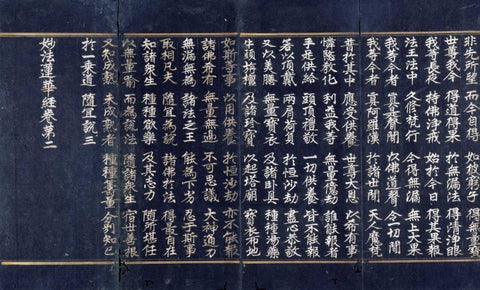 非先所望 而今自得 如彼窮子 得無量寶
世尊我今 得道得果 於無漏法 得清淨眼
我等長夜 持佛淨戒 始於今日 得其果報
法王法中 久修梵行 今得無漏 無上大果
我等今者 真是聲聞 以佛道聲 令一切聞
我等今者 真阿羅漢 於諸世間 天人魔梵
普於其中 應受供養 世尊大恩 以希有事
憐愍教化 利益我等 無量億劫 誰能報者
手足供給 頭頂禮敬 一切供養 皆不能報
若以頂戴 兩肩荷負 於恒沙劫 盡心恭敬
又以美饍 無量寶衣 及諸臥具 種種湯藥
牛頭栴檀 及諸珍寶 以起塔廟 寶衣布地
如斯等事 以用供養 於恒沙劫 亦不能報
諸佛希有 無量無邊 不可思議 大神通力
無漏無為 諸法之王 能為下劣 忍于斯事
取相凡夫 隨宜為說 諸佛於法 得最自在
知諸衆生 種種欲樂 及其志力 隨所堪任
以無量喻 而為說法 隨諸衆生 宿世善根
又知成熟 未成熟者 種種籌量 分別知已
於一乘道 隨宜說三
妙法蓮華經卷第二